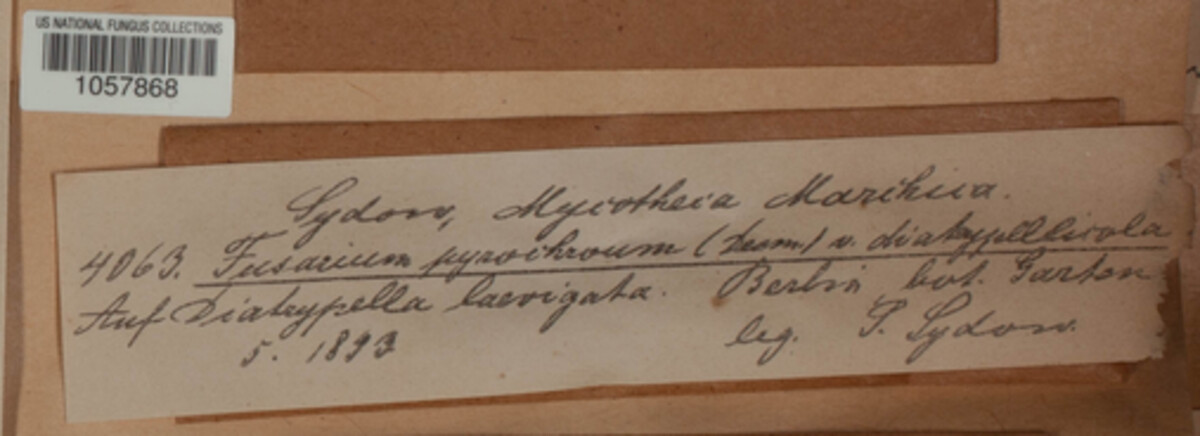 US NATIONAL FUNGUS COLLECTIONS
1057868
Sydow, Mycotheca Marchica.
4063. Fusarium pyrochroum (Desm.) v. diatrypellicola
Auf Diatrypella laevigata. Berlin bot. Garten
5. 1893 leg. P. Sydow.